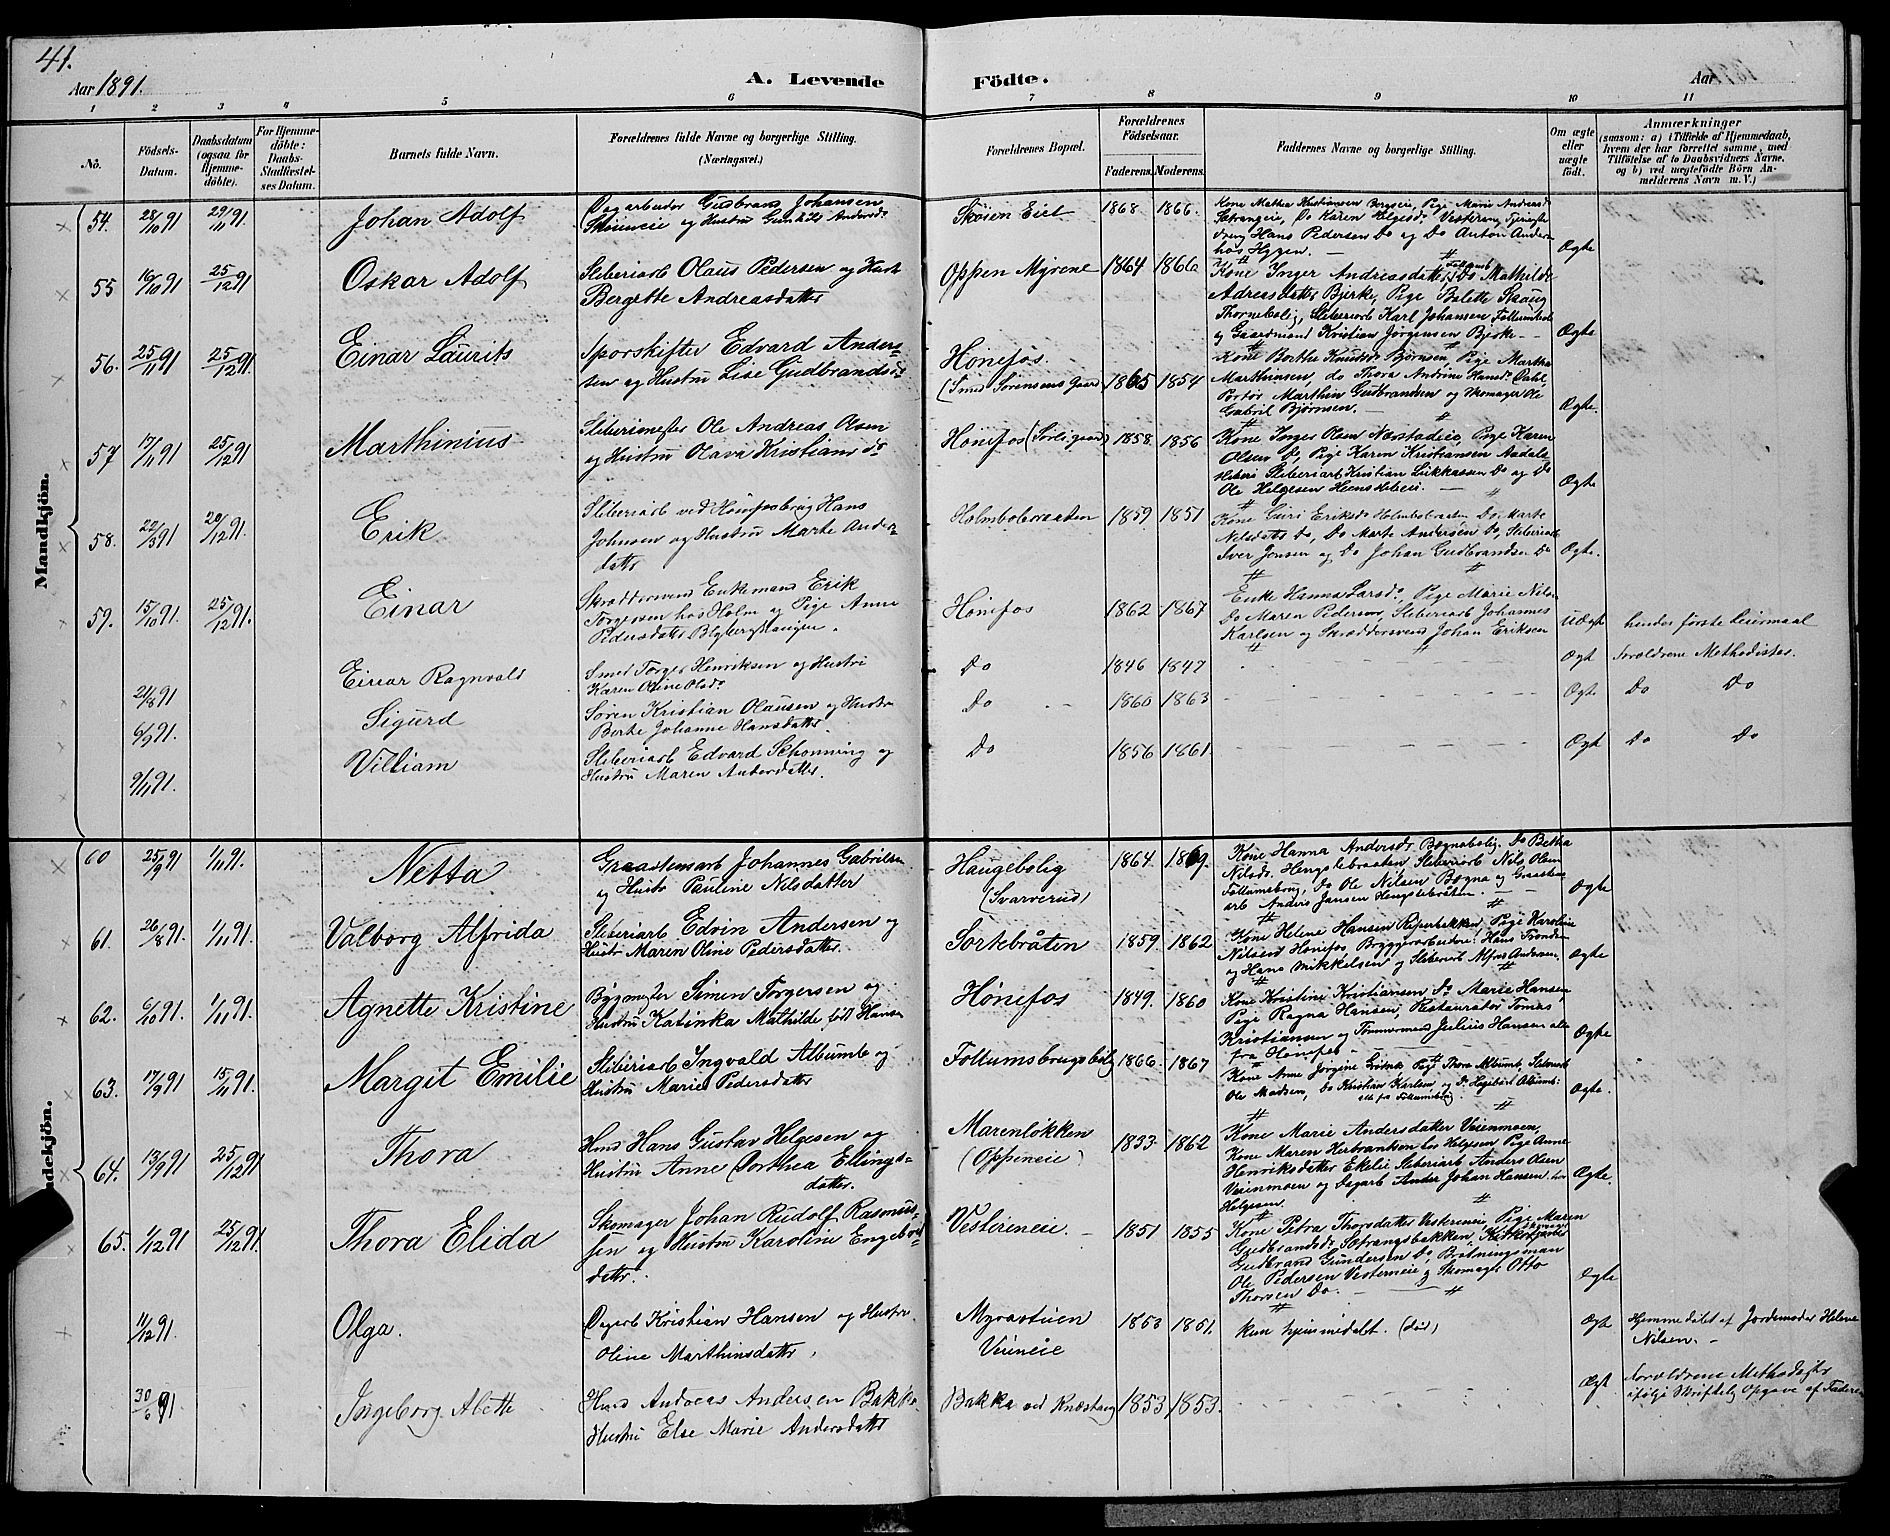 41.
Aar 1891.
A. Levende
Födte.
Aar
1 2 3 4 5 6 7 8 9 10 11
No.
Födsels-
Datum.
Daabsdatum
(ogsaa for
Hjemme-
döbte).
For Hjemme-
döbte:
Daabs-
Stadfæstel-
ses Datum.
Barnets fulde Navn.
Forældrenes fulde Navne og borgerlige Stilling.
(Næringsvei.)
Forældrenes Bopæl.
Forældrenes
Födselsaar.
Faderens. Moderens.
Faddernes Navne og borgerlige Stilling.
Om ægte
eller
uægte
födt.
Anmærkninger
(saasom: a) i Tilfælde af Hjemmedaab,
hvem der har forrettet samme, med
Tilföielse af to Daabsvidners Navne.
og b) ved uægtefödte Börn An-
melderens Navn m. V.)
Mandkjön.
54. 28/10 91 29/11 91. Johan Adolf
Dagarbeider Gudbrand Johansen
og Hustru Gunhild Andersd.
Skøien Eiet 1868. 1866.
Kone Mathea Kristiansen Borgseie, Pige Marie Andreasd.
Sætrangeie, Do Karen Helgesd. Vestereng, Tjeneste
dreng Hans Pedersen Do og Do Anton Anders
hos Hygen. —
Ægte
55 16/10 91 25/12 91 Oskar Adolf
Sliberiarb Olaus Pedersen og Hust
Bergette Andreasdatter
Oppen Myrene 1864 1866
Kone Inger Andreasdatter, Do Mathilde
Adreasdatter Bjerke, Pige Bolette Skaug
Thornebolig, Sliberiarb Karl Johansen
og Gaardmand Kristian Jørgensen Bjerke. —
Ægte
56. 25/11 91 25/12 91. Einar Laurits
Sporskifter Edvard Anders-
sen og Hustru Lise Gudbrandsd.
Hønefos.
(Smed Sørensens Gaard) 1865 1854
Kone Berthe Knudsd. Bjørnsen, Pige Martha
Marthinsen, do Thora Andrine Hansd. Dahl,
Portør Marthin Gudbrandsen og Skomager Ole
Gabril Bjørnsen. —
Ægte.
57 17/11 91 25/12 91 Marthinius
Sliberimester Ole Andreas Olsen
og Hustru Olava Kristiansd.
Hønefos (Sørligaard) 1858. 1856
Kone Inger Olsen Næstadeie, Pige Karen
Olsen Do, Pige Karen Kristiansen Aadals-
Sliberiarb Kristian Lukkassen Do og Do
Ole Helgesen —
Ægte
58. 22/3 91 20/12 91. Erik
Sliberiarb ved Hønefosbrug Hans
Johnsen og Hustru Marte Anders-
datter
Holmbobraaten 1859 1851
Kone Guri Eriksd. Holmbobraaten Do, Marte
Nelsdatter Do, Do Marte Andersen Do, Sliberiarb
Iver Jensen og Do Johan Gudbrandsen Do
Ægte.
59. 15/10 91. 25/12 91. Einar
Skræddersvend Enkemand Erik
Torgersen hos Holm og Pige Anne
Pedersdatter
Hønefos 1862 1867
Enke Hanna Larsd., Pige Marie Nils-
Do Maren Pedersen, Sliberiarb Johannes
Karlsen og Skræddersvend Johan Eriksen
uægt hendes første Leiermaal
21/8 91 Einar Ragnvald
Smed Torger Henriksen og Hustru
Karen Oline Olsd.
Do 1846 1847
Ægt Foreldrene Methodister.
6/9 91. Sigurd
Søren Kristian Olausen og Hustru
Berte Johanne Hansdatter
Do 1860 1863
Ægte Do Do
9/11 91. Villiam
Sliberiarb Edvard Schønning og
Hustru Maren Andersdatter.
Do 1856 1861.
Ægt Do Do
ndekjön.
60 25/9 91 1/11 91. Netta
Graastensarb Johannes Gabrilsen
og Hustr Pauline Nelsdatter
Haugebolig
(Svarverud) 1864. 1869.
Kone Hanna Andersdr Bægnabolig, Do Bertha
Nelsdr. Hengslebraaten Sliberiarb Nils Olsen
Follumsbrug, Do Ole Nilsen Bægna og Graasten
arb Anders Jansen Hengslebråten. —
Ægte
61. 26/8 91. 1/11 91. Valborg Alfrida
Sliberiarb Edvin Andersen og
Hustr Maren Oline Pedersdatter.
Sørkebråten 1859. 1862
Kone Helene Hansen Riperbakken, Pige Karoline
Nilsen Hønefos Bryggeriarbeidere Hans Trondsen
og Hans Mikkelsen og Sliberiarb Alfred Andersen.
Ægte
62. 6/10 91. 1/11 91. Agnette Kristine
Bygmester Simen Torgersen og
Hustru Katinka Mathilde fød Hansen
Hønefos 1849. 1860
Kone Kristine Kristiansen Do Marie Hansen,
Pige Ragna Hansen, Restauratør Tomas
Kristiansen og Tømmermand Julius Hansen alle
fra Hønefos —
Ægte
63. 17/9 91 15/11 91. Margit Emilie
Sliberiarb Ingvald Albumb og
Hustru Marie Pedersdatter
Follumsbrugsbolig 1866. 1867
Kone Anne Jørgine Grøtnæs Pige Thora Albumb, Sliberiarb
Ole Madsen, Do Kristian Karlsen, og Do Hagbart Albumb.
alle fra Follumsbrug.
Ægte.
64. 13/9 91 25/12 91 Thora
Hmd Hans Gustav Helgesen og
Hustru Anne Dorthea Ellings-
datter.
Marenløkken
(Oppeneie) 1833. 1862
Kone Marie Andersdatter Veienmoen,
Kone Maren Herbranksen hos Helgesen Pige Anne
Henriksdatter Ekelie Sliberiarb Anders Olsen
Veienmoen og Dagarb Ander Johan Hansen. hos
Helgesen.
Ægte.
65. 1/12 91 25/12 91. Thora Elida
Skomager Johan Rudolf Rasmus-
sen og Hustru Karoline Engebret
datter.
Vesterneie. — 1851 1855
Kone Petra Thorsdatter Vesterneie, Pige Maren
Gudbrandsdr Sætrangsbakken,
Gudbrand Gundersen Do, Brøtningsman
Ole Pedersen Vesterneie og Skomager Otto
Thorsen Do. —
Ægte
11/12 91. Olga.
Dagarb Kristian Hansen og Hustru
Oline Marthinsdatter,
Myrastuen
Veieneie 1853 1851.
kun hjemmedøbt. (død)
Ægte Hjemmedøbt af Jordemoder Helene
Nilsen. —
30/6 91 Ingeborg Alette
Hmd Andreas Andersen Bakke
Hustru Else Marie Andersdatter
Bakka ved Knestang 1853 1853.
Ægt Foreldrene Methodister
ifølge Skriftelig Opgave af Faderen